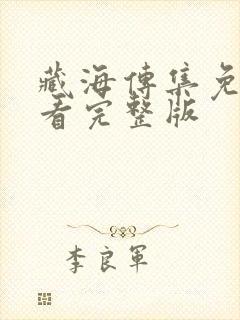 藏海传集免
看完整版
李良军